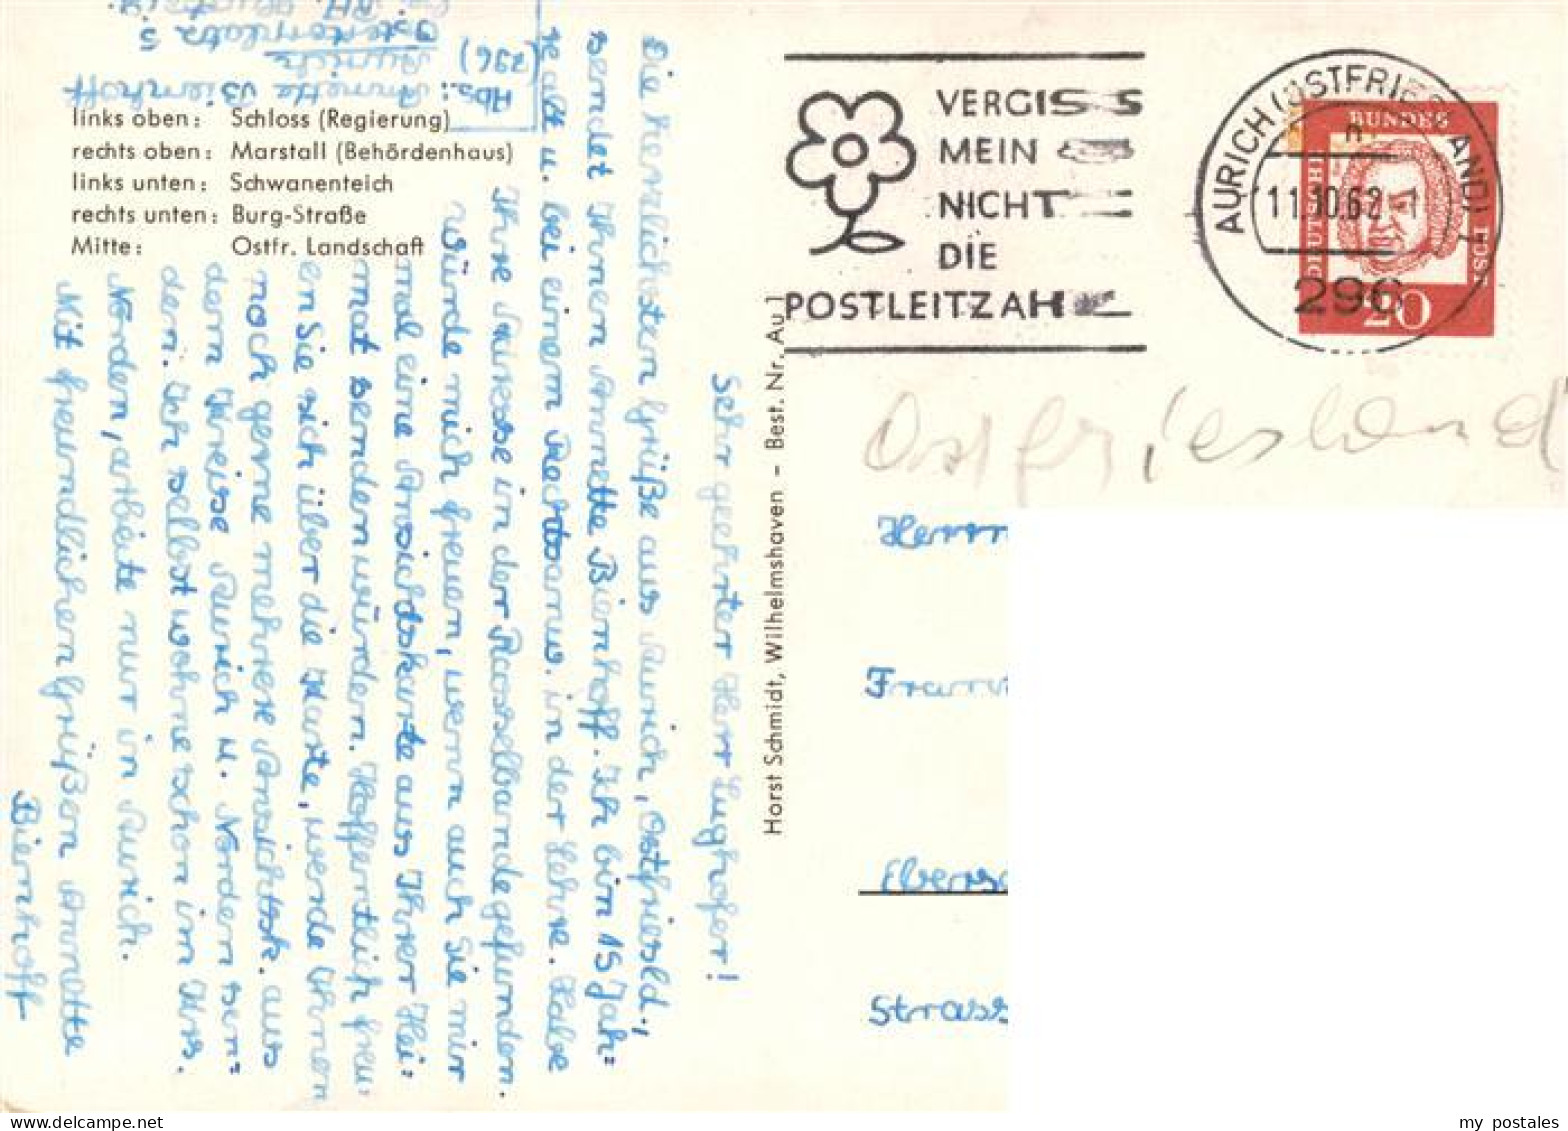 Abs.: Annette Bienhoff
(296) Aurich
Ostertorplatz 5
links oben: Schloss (Regierung)
rechts oben: Marstall (Behördenhaus)
links unten: Schwanenteich
rechts unten: Burg-Straße
Mitte: Ostfr. Landschaft
Sehr geehrter Herr Lughofer!
Die herzlichsten Grüße aus Aurich, Ostfriesld.,
sendet Ihnen Annette Bienhoff. Ich bin 15 Jah=
re alt u. bei einem Rechtsanw. in der Lehre. Habe
Ihre Adresse in der Rasselbande gefunden.
Würde mich freuen, wenn auch Sie mir
mal eine Ansichtskarte aus Ihrer Hei=
mat senden würden. Hoffentlich freu=
en Sie sich über die Karte, werde Ihnen
noch gerne mehrere Ansichtsk. aus
dem Kreise Aurich u. Norden sen=
den. Ich selbst wohne schon im Krs.
Norden, arbeite nur in Aurich.
Mit freundlichen Grüßen Annette
Bienhoff
Horst Schmidt, Wilhelmshaven - Best. Nr. Au
VERGISS
MEIN
NICHT
DIE
POSTLEITZAHL
AURICH (OSTFRIESLAND) 1
11.10.62
296
DEUTSCHE BUNDESPOST
20
Ostfriesland
Herrn
Strass
my postales